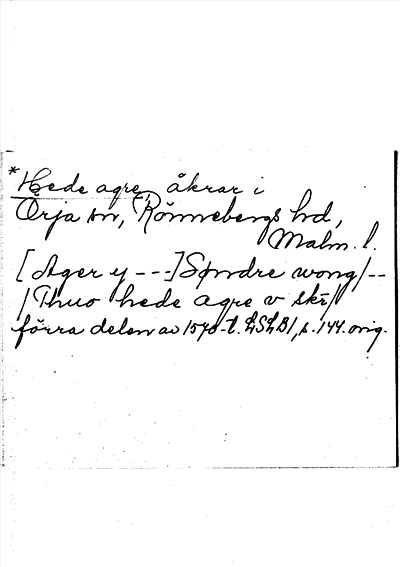 *Hede agre, åkrar i
Örja sn, Rönnebergs hd,
Malm. l.
[Ager y ---] Søndre wong/--
/Thuo hede agre v skr/
förra delen av 1570-t. LSLB/, s. 144. orig.